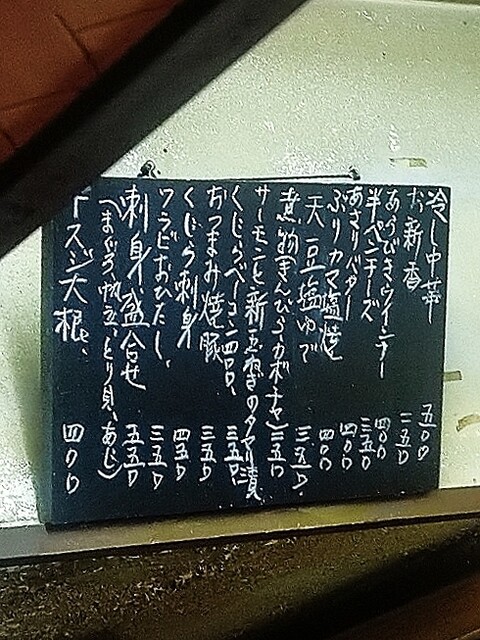 冷し中華 五〇〇
お新香 二五〇
あらびきウインナー 四〇〇
半ペンチーズ 三五〇
あさりバター 四〇〇
ぶりカマ塩焼 四〇〇
天豆塩ゆで 三五〇.
煮物(きんぴら、カボチャ) 三五〇
サーモンと新玉葱のタマリ漬
くじらベーコン四〇〇、 三五〇
おつまみ焼豚 三五〇
くじら刺身 四五〇
ワラビおひたし、 三五〇
刺身盛合せ 五五〇
(まぐろ、帆立、とり貝、あじ)
牛スジ大根、 四〇〇